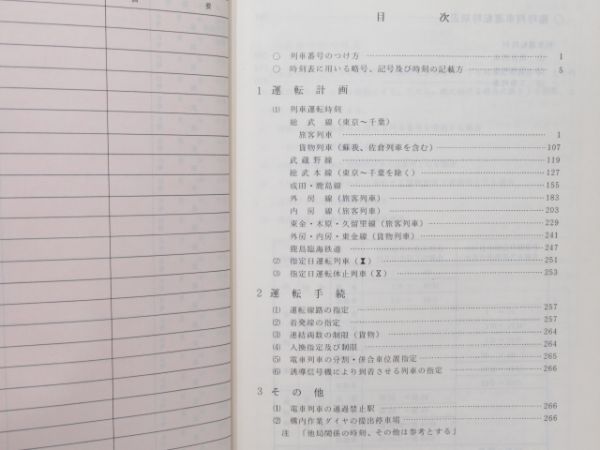 要
目 次
○ 列車番号のつけ方 1
○ 時刻表に用いる略号、記号及び時刻の記載方 5
1 運転計画
(1) 列車運転時刻
総武線（東京～千葉）
旅客列車 1
貨物列車（蘇我、佐倉列車を含む） 107
武蔵野線 119
総武本線（東京～千葉を除く） 127
成田・鹿島線 155
外房線（旅客列車） 183
内房線（旅客列車） 203
東金・木原・久留里線（旅客列車） 229
外房・内房・東金線（貨物列車） 241
鹿島臨海鉄道 247
(2) 指定日運転列車（Ⅱ） 251
(3) 指定日運転休止列車（X） 253
2 運転手続
(1) 運転線路の指定 257
(2) 着発線の指定 257
(3) 連結両数の制限（貨物） 264
(4) 入換指定及び制限 264
(5) 電車列車の分割・併合車位置指定 265
(6) 誘導信号機により到着させる列車の指定 266
3 その他
(1) 電車列車の通過禁止駅 266
(2) 構内作業ダイヤの提出停車場 266
注 「他局関係の時刻、その他は参考とする」